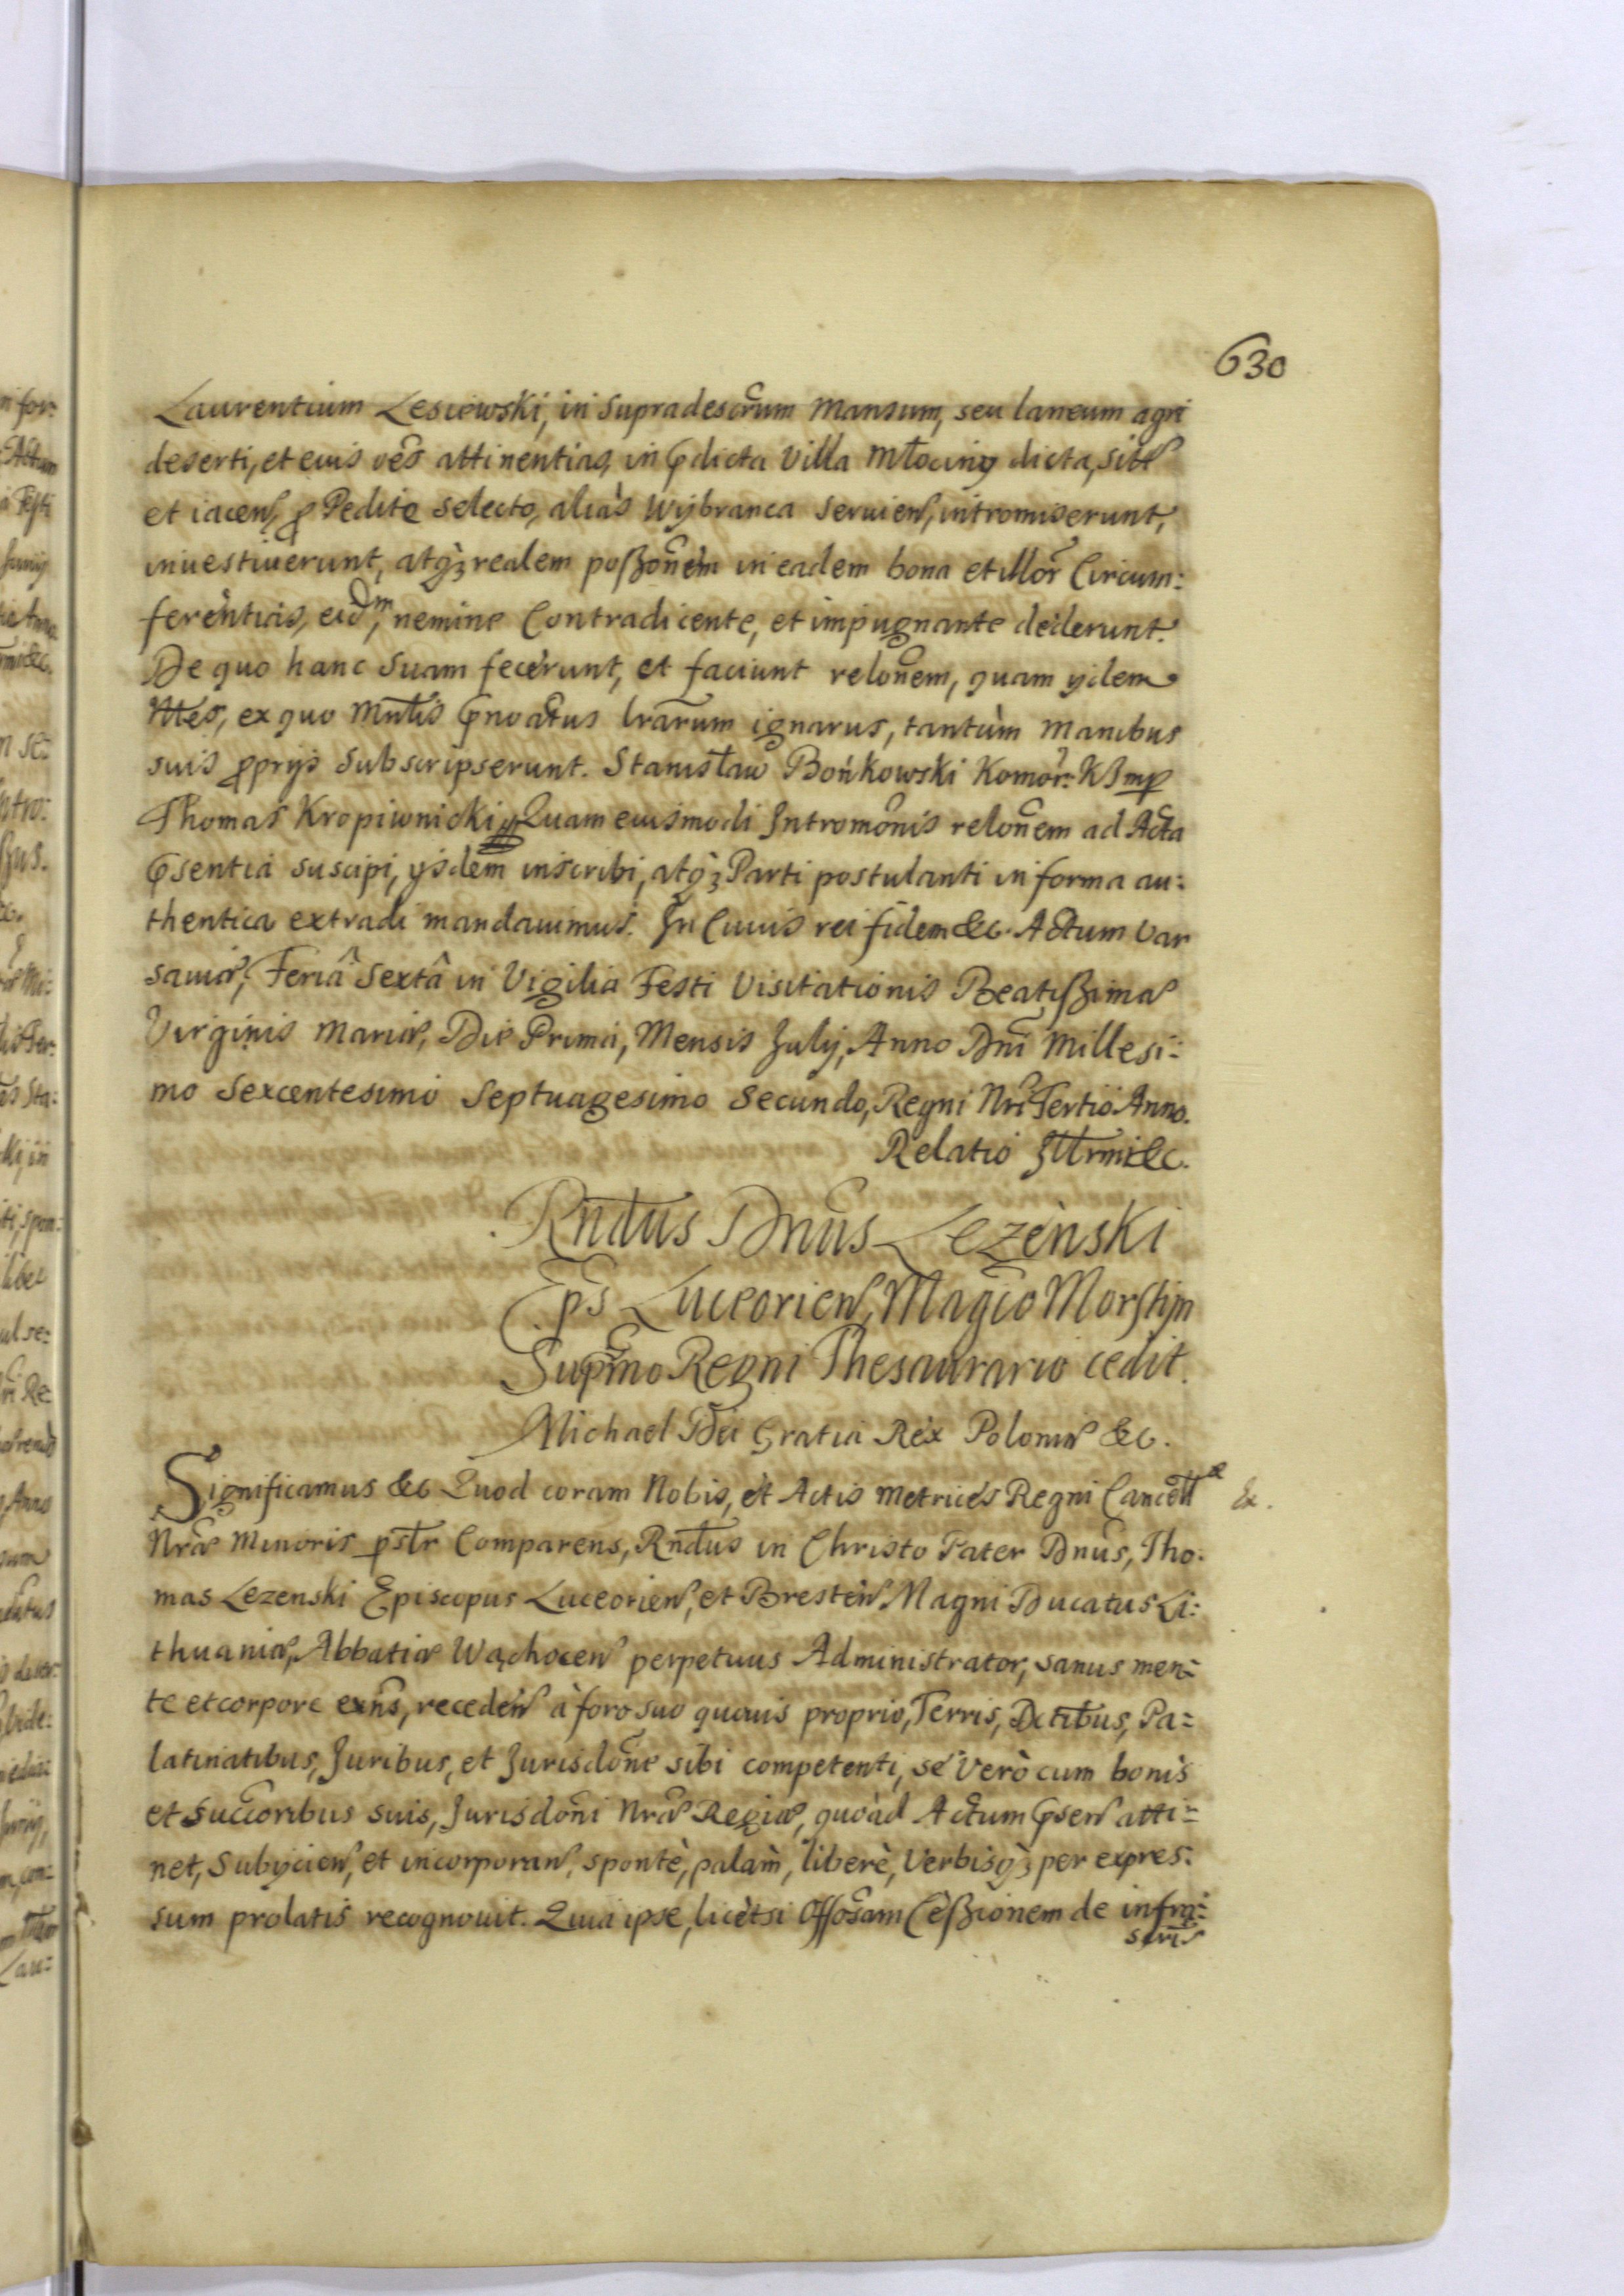 630
Laurentium Lesiewski, in supradescrum Mansum, seu laneum agri
deserti, et eius oes attinentias, in pdicta Villa Młociny dicta, sitt
et iacen, p Pedite selecto, aliàs Wÿbranca seruien, intromiserunt,
inuestiuerunt, atq3 realem poßonem in eadem bona et illor Circum:
ferentias, eidm, nemine Contradicente, et impugnante dederunt.
De quo hanc Suam fecerunt, et faciunt relonem, quam ydem
Ntes, ex quo Mntis pnoatus lrarum ignarus, tantùm Manibus
suis pprijs subscripserunt. Stanisław Bońkowski Komor: KJmp
Thomas Kropiwnicki Quam eiusmodi Intromonis relonem ad Acta
psentia suscipi, ysdem inscribi, atq3 Parti postulanti in forma au:
thentica extradi mandauimus. In Cuius rei fidem &c. Actum Var
sauiæ, Feriâ Sextâ in Vigilia Festi Visitationis Beatißimæ
Virginis Mariæ, Die Prima, Mensis July, Anno Dni Millesi:
mo Sexcentesimo Septuagesimo Secundo, Regni Nri Tertio Anno.
Relatio Illrmi &c.
Rndus Dnus Lezenski
Eps Luceorien, Magco Morstyn
Supmo Regni Thesaurario cedit.
Michael Dei Gratia Rex Poloniæ &c.
Significamus &c Quod coram Nobis, et Actis Metrices Regni Cancell æ &.
Nræ Minoris pstr Comparens, Rndus in Christo Pater Dnus, Tho:
mas Lezenski Episcopus Luceorien, et Bresten Magni Ducatus Li:
thuaniæ, Abbatiæ Wąchocen perpetuus Administrator, sanus men:
te et corpore exns, receden à foro suo quouis proprio, Terris, Dctibus, Pa:
latinatibus, Juribus, et Jurisdone sibi competenti, se Verò cum bonis
et succoribus suis, Jurisdoni Nræ Regiæ, quoàd Actum psen atti:
net, Subycien, et incorporan, spontè, palàm, liberè, Verbisq3 per expres:
sum prolatis recognouit. Quia ipse, licètsi Offosam Ceßionem de infra:
scris